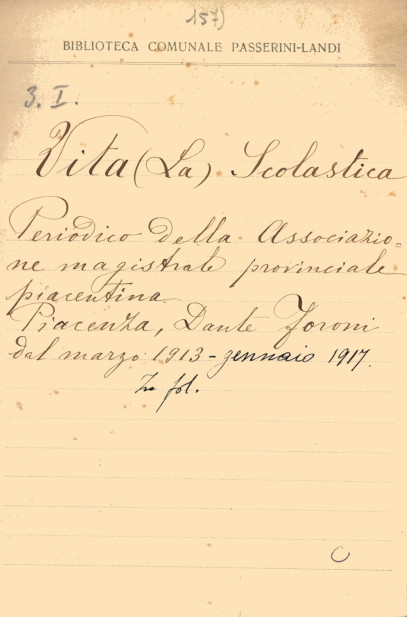 157)
BIBLIOTECA COMUNALE PASSERINI-LANDI
3. I.
Vita (La) Scolastica
Periodico della Associazio=
ne magistrale provinciale
piacentina.
Piacenza, Dante Foroni
dal marzo 1913 - gennaio 1917.
fol.